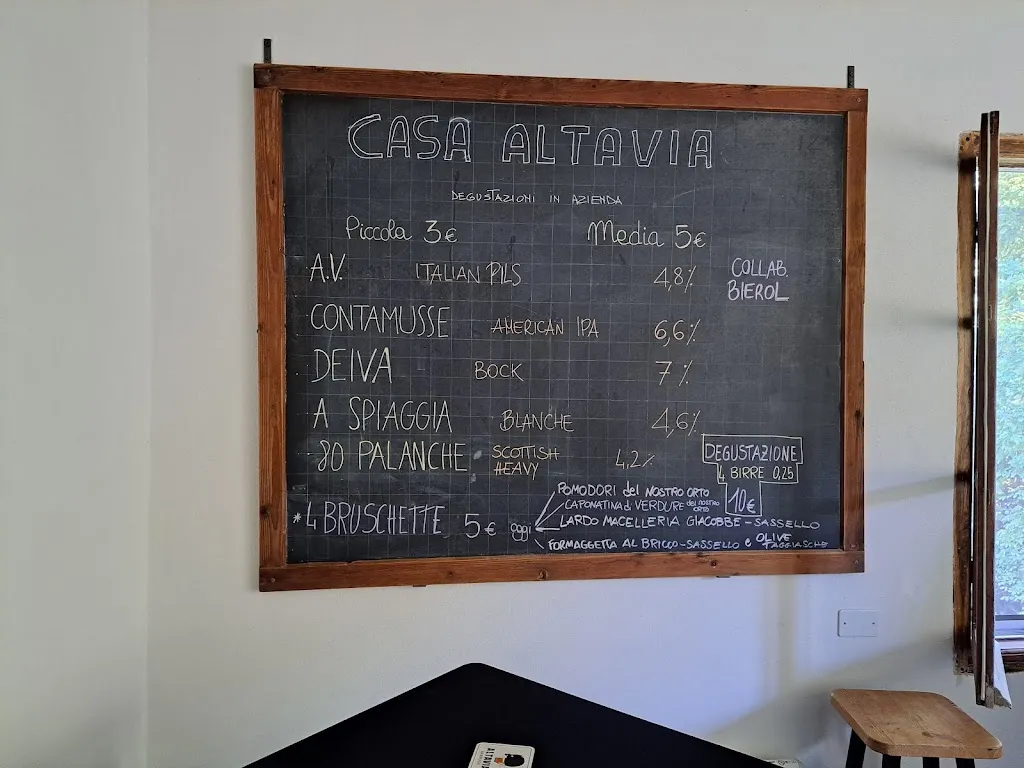 CASA ALTAVIA
DEGUSTAZIONI IN AZIENDA
Piccola 3€ Media 5€
A.V. ITALIAN PILS 4,8% COLLAB. BIEROL
CONTAMUSSE AMERICAN IPA 6,6%
DEIVA BOCK 7%
A SPIAGGIA BLANCHE 4,6%
80 PALANCHE SCOTTISH HEAVY 4,2%
DEGUSTAZIONE
4 BIRRE 0,25
10€
*4 BRUSCHETTE 5€ oggi
POMODORI del NOSTRO ORTO
CAPONATINA di VERDURE del NOSTRO ORTO
LARDO MACELLERIA GIACOBBE - SASSELLO
FORMAGGETTA AL BRICCO - SASSELLO e OLIVE TAGGIASCHE